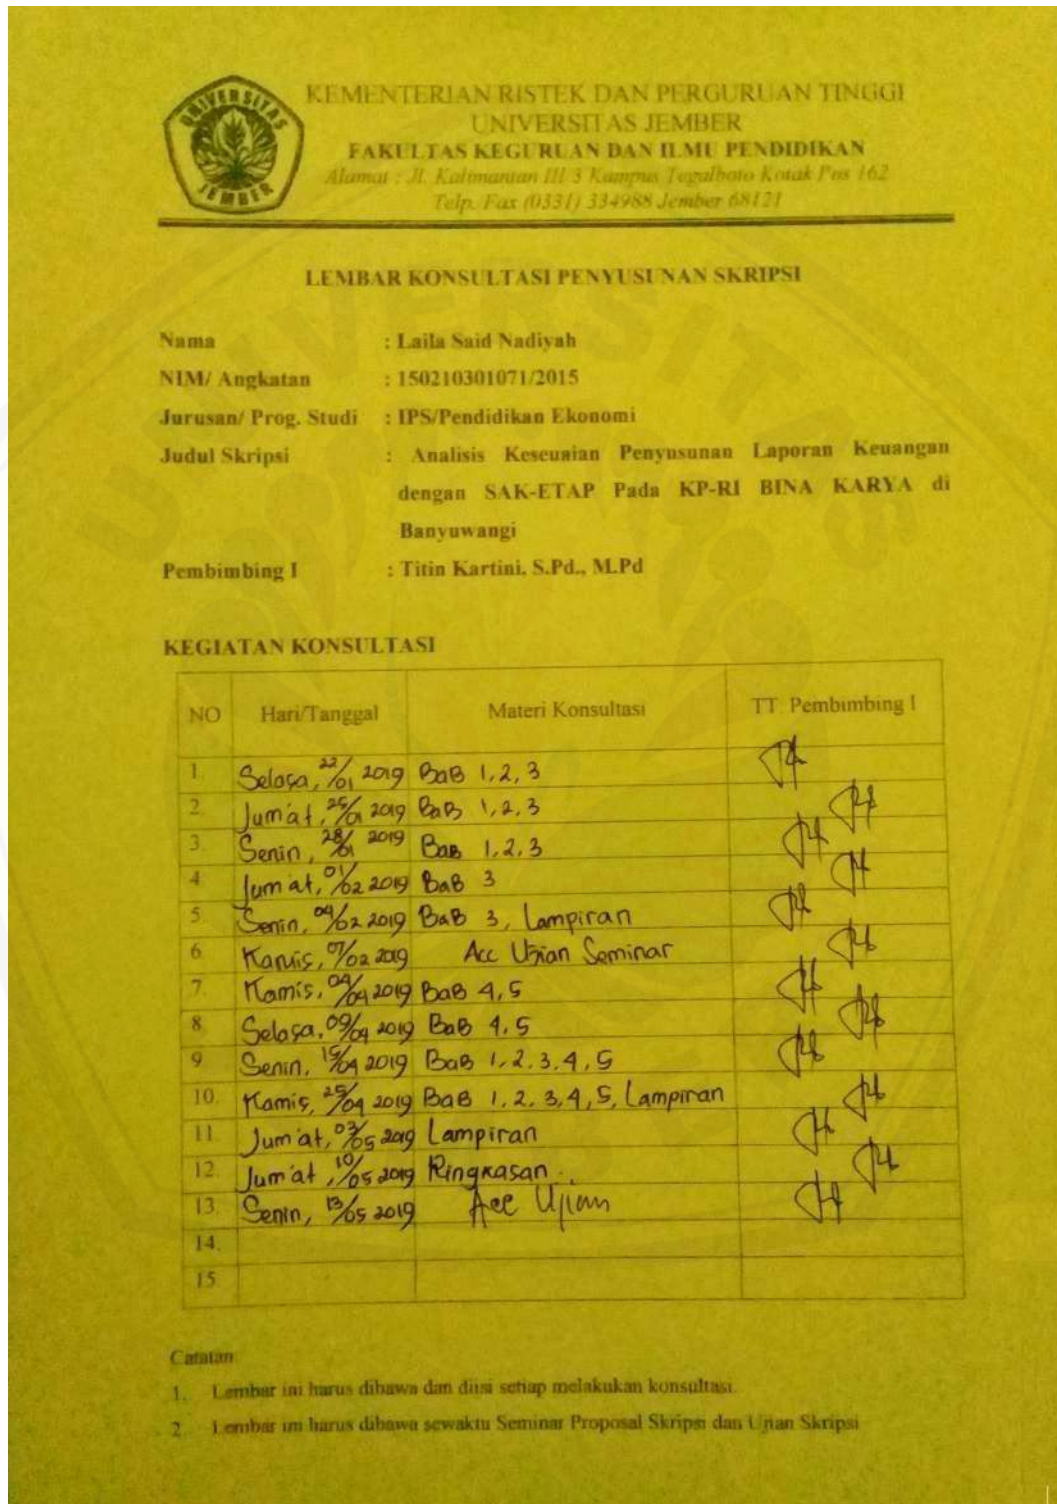 UNIVERSITAS
JEMBER
KEMENTERIAN RISTEK DAN PERGURUAN TINGGI
UNIVERSITAS JEMBER
FAKULTAS KEGURUAN DAN ILMU PENDIDIKAN
Alamat : Jl. Kalimantan III/3 Kampus Tegalboto Kotak Pos 162
Telp. Fax (0331) 334988 Jember 68121
LEMBAR KONSULTASI PENYUSUNAN SKRIPSI
Nama : Laila Said Nadiyah
NIM/ Angkatan : 150210301071/2015
Jurusan/ Prog. Studi : IPS/Pendidikan Ekonomi
Judul Skripsi : Analisis Kesesuaian Penyusunan Laporan Keuangan
dengan SAK-ETAP Pada KP-RI BINA KARYA di
Banyuwangi
Pembimbing I : Titin Kartini, S.Pd., M.Pd
KEGIATAN KONSULTASI
NO Hari/Tanggal Materi Konsultasi TT. Pembimbing I
1. Selasa, 22/01 2019 BaB 1, 2, 3
2. Jum'at, 25/01 2019 BaB 1, 2, 3
3. Senin, 28/01 2019 BaB 1, 2, 3
4. Jum'at, 01/02 2019 BaB 3
5. Senin, 04/02 2019 BaB 3, Lampiran
6. Kamis, 07/02 2019 Acc Ujian Seminar
7. Kamis, 04/04 2019 BaB 4, 5
8. Selasa, 09/04 2019 BaB 4, 5
9. Senin, 15/04 2019 BaB 1, 2, 3, 4, 5
10. Kamis, 25/04 2019 BaB 1, 2, 3, 4, 5, Lampiran
11. Jum'at, 03/05 2019 Lampiran
12. Jum'at, 10/05 2019 Ringkasan.
13. Senin, 13/05 2019 Acc Ujian
14.
15
Catatan
1. Lembar ini harus dibawa dan diisi setiap melakukan konsultasi.
2. Lembar ini harus dibawa sewaktu Seminar Proposal Skripsi dan Ujian Skripsi